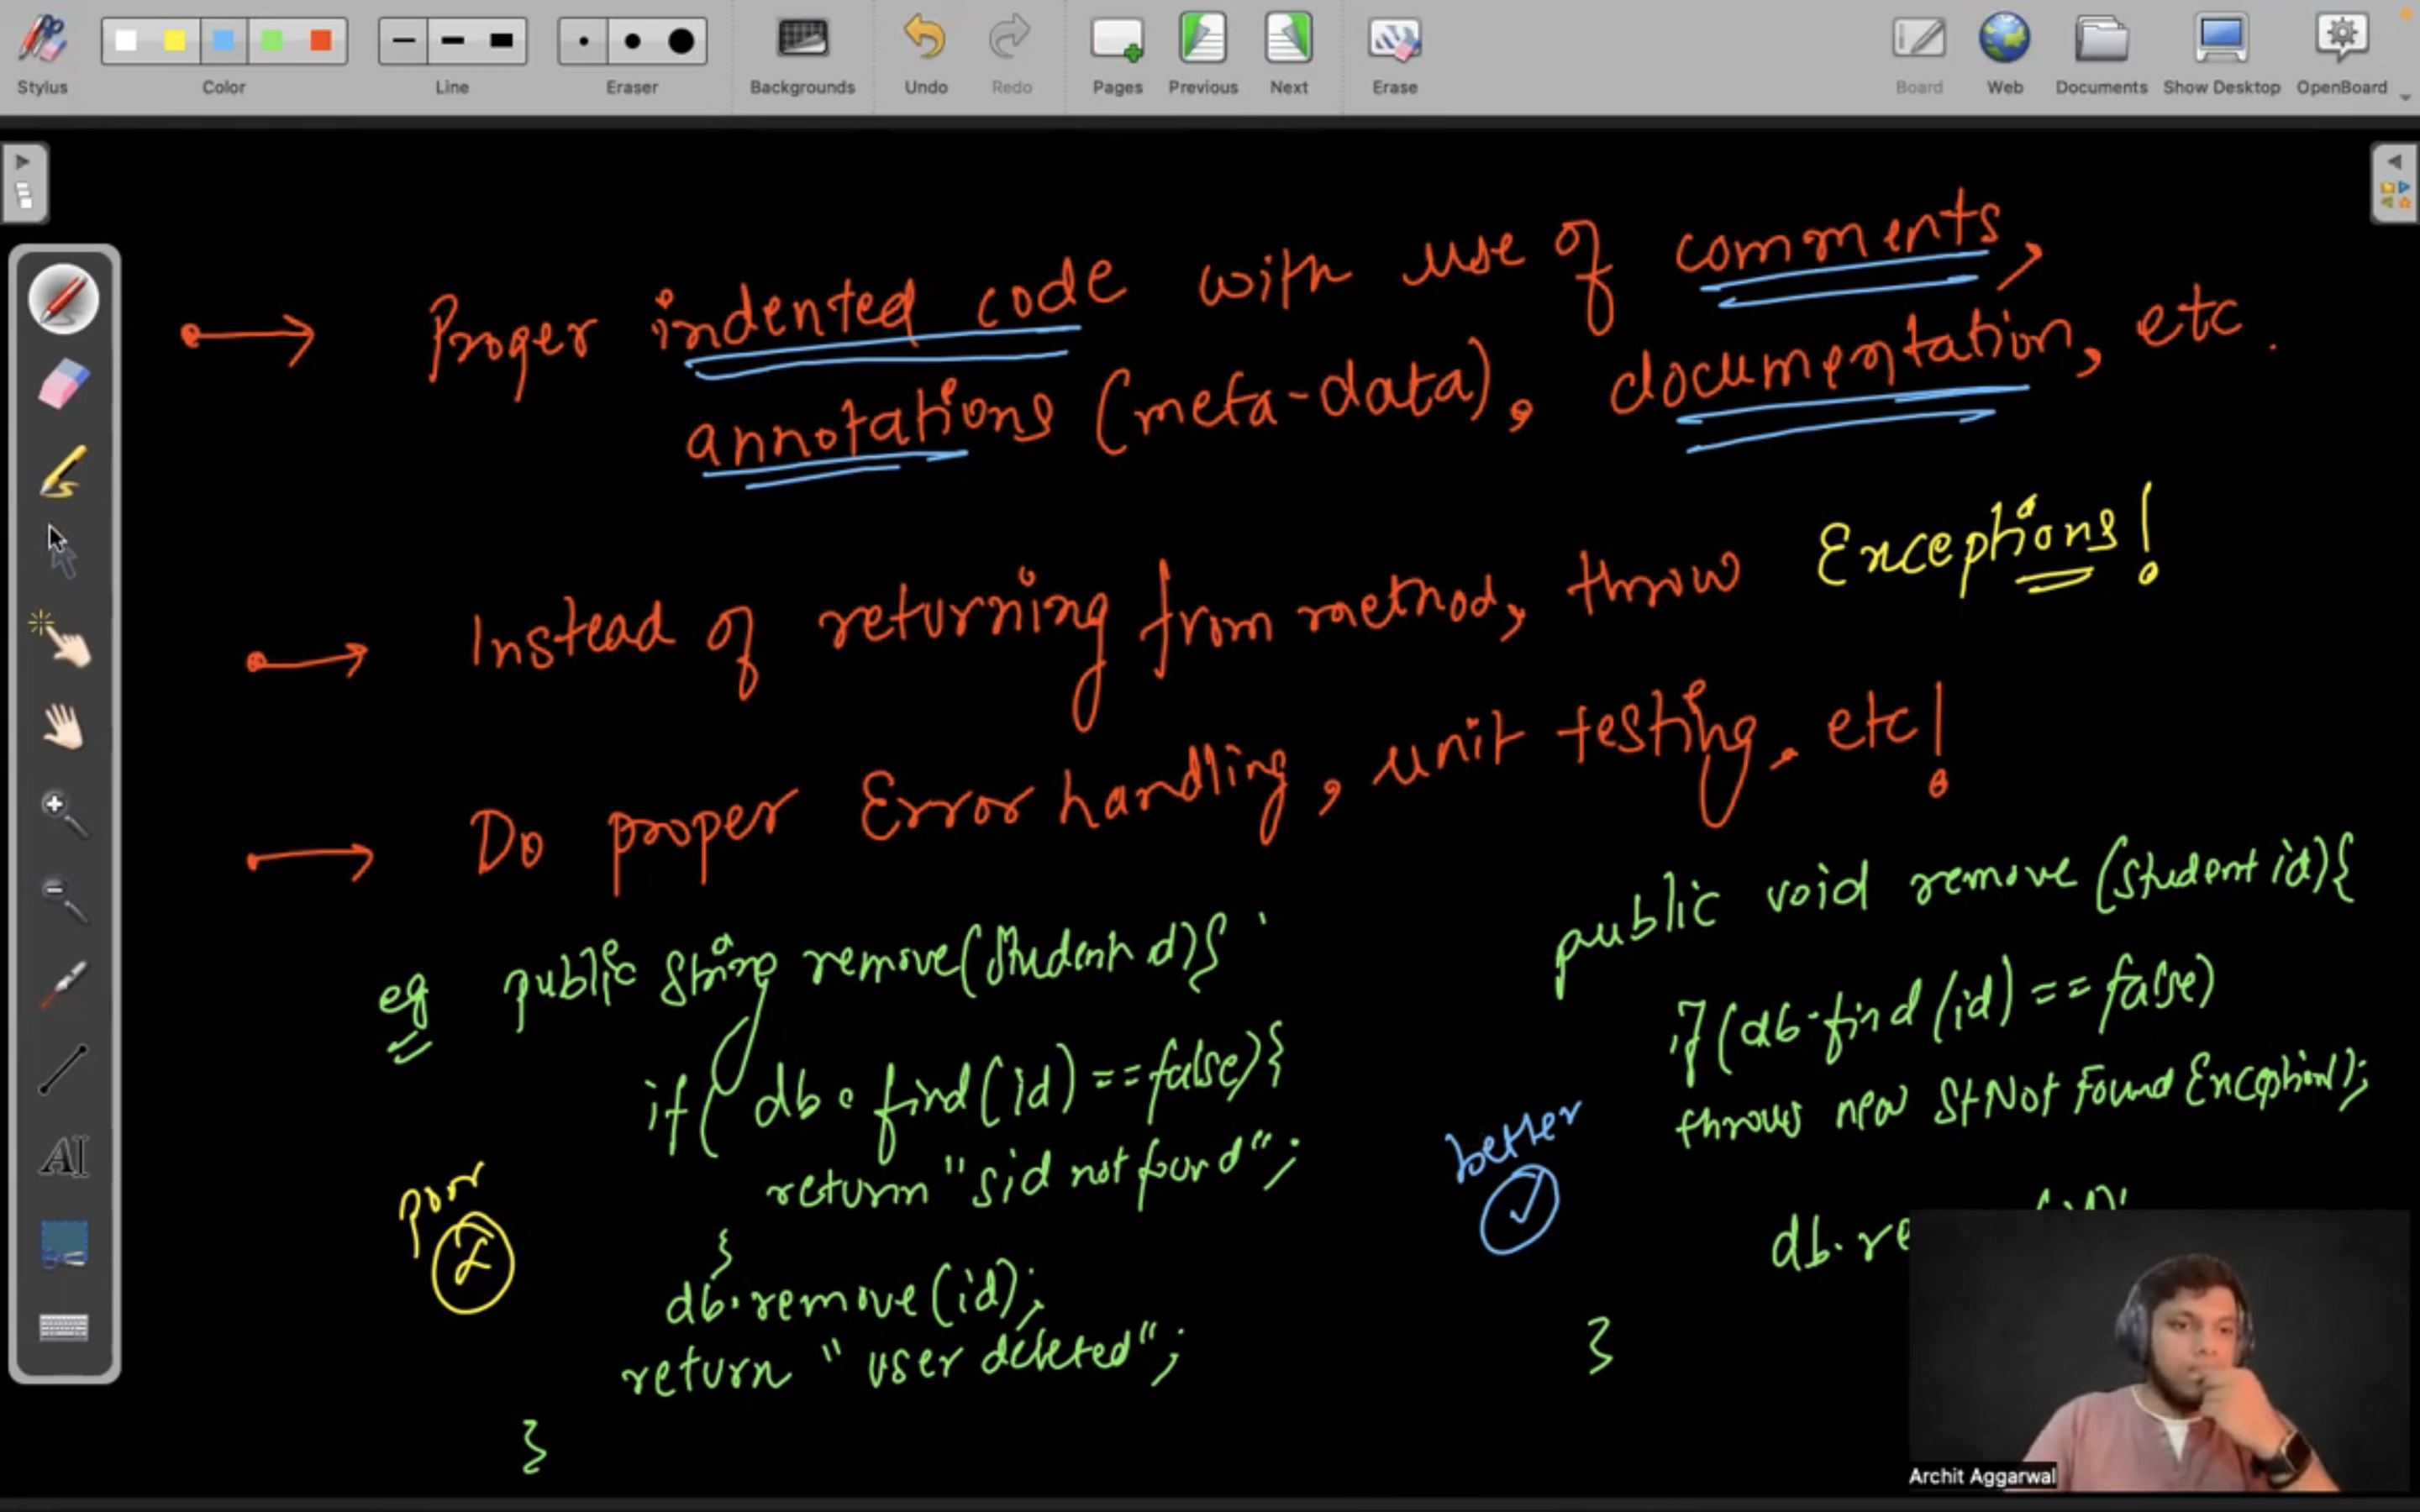 Stylus
Color
Line
Eraser
Backgrounds
Undo
Redo
Pages
Previous
Next
Erase
Board
Web
Documents
Show Desktop
OpenBoard
Proper indented code with use of comments,
annotations (meta-data), documentation, etc.
Instead of returning from method, throw Exceptions!
Do proper Error handling, unit testing, etc!
eg public String remove(Student id){
if( db.find(id)==false){
return "sid not found";
}
db.remove(id);
return "user deleted";
}
poor
better
public void remove (Student id){
if(db.find(id)==false)
throws new StNotFoundException();
db.re
}
AI
Archit Aggarwal